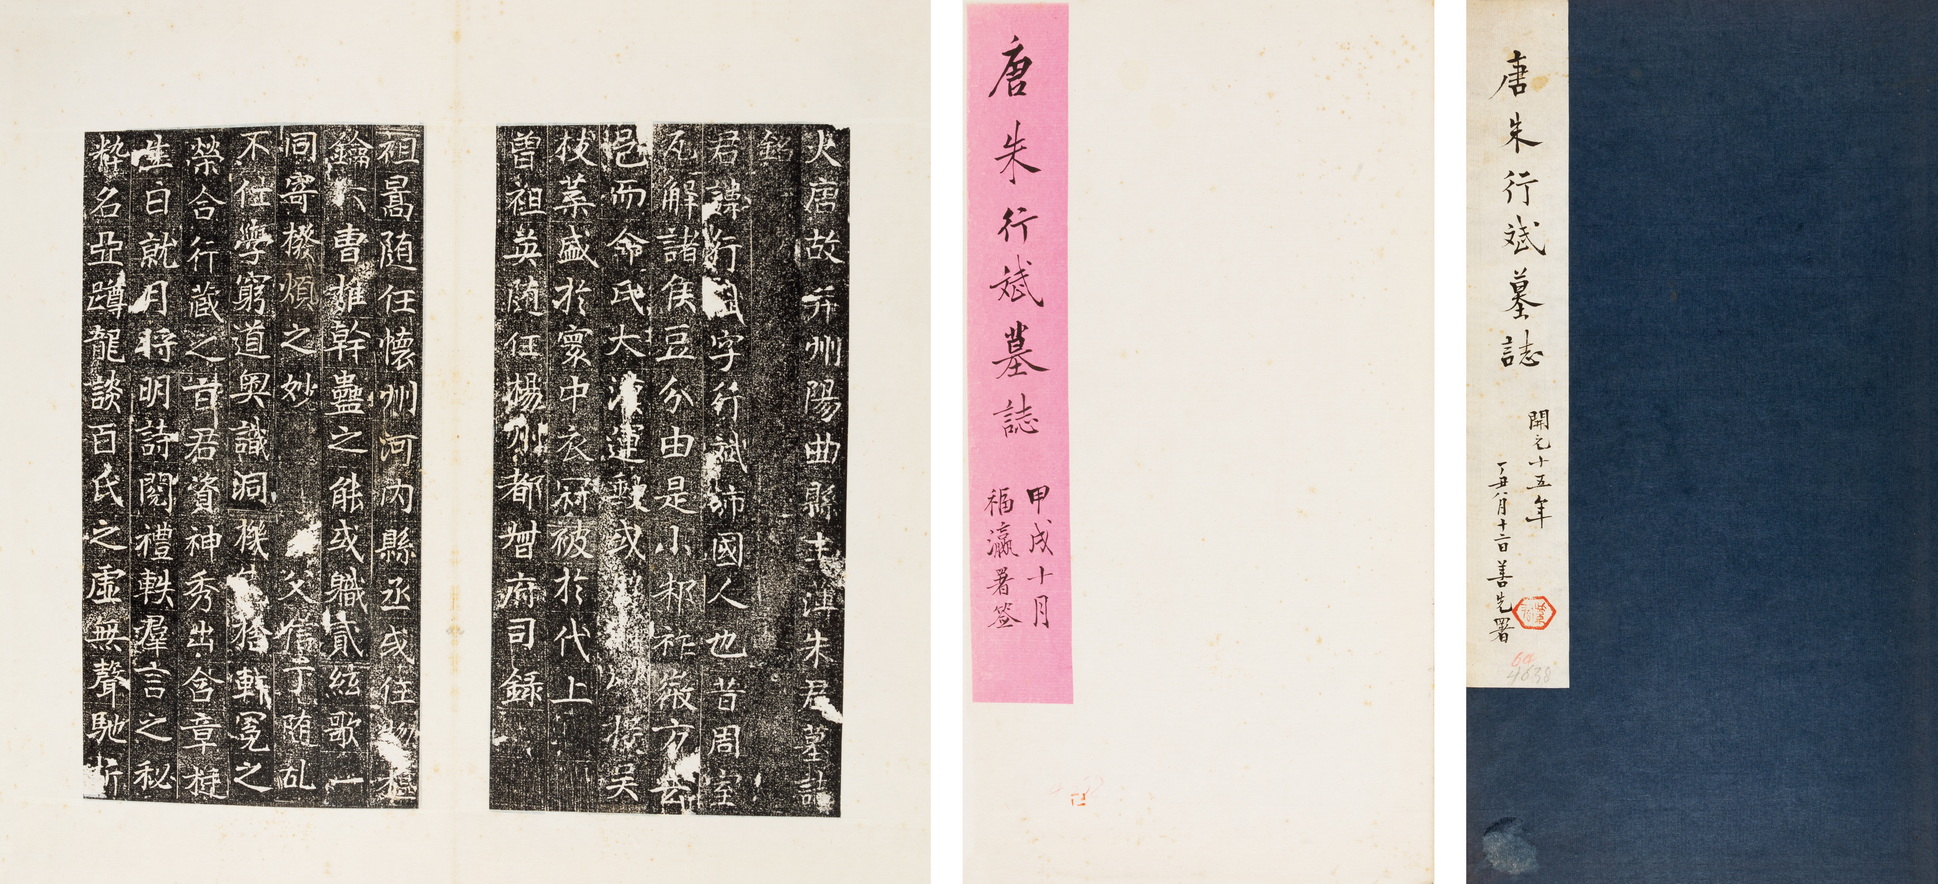 火唐故并州陽曲縣主簿朱君墓誌
銘
君諱行斌字行斌沛國人也昔周室
瓦解諸侯豆分由是小邾祚微方去
邑而命氏大漢運鍾或
枝葉盛於寰中衣冠被於代上
曾祖英随任楊州都督府司録
祖暠随任懷州河内縣丞或任
鑰六曹推幹蠱之能或職貳絃歌一
同寄撥煩之妙 父 随乱
不仕學窮道奥識洞機 軒冕之
榮合行藏之旨君資神秀出含章挺
生日就月將明詩閱禮軼羣言之秘
粹名亞蹲龍談百氏之虛無聲馳析
唐朱行斌墓誌
甲戌十月
福瀛署簽
唐朱行斌墓誌
開元十五年
丁丑八月十二日善先署
4638